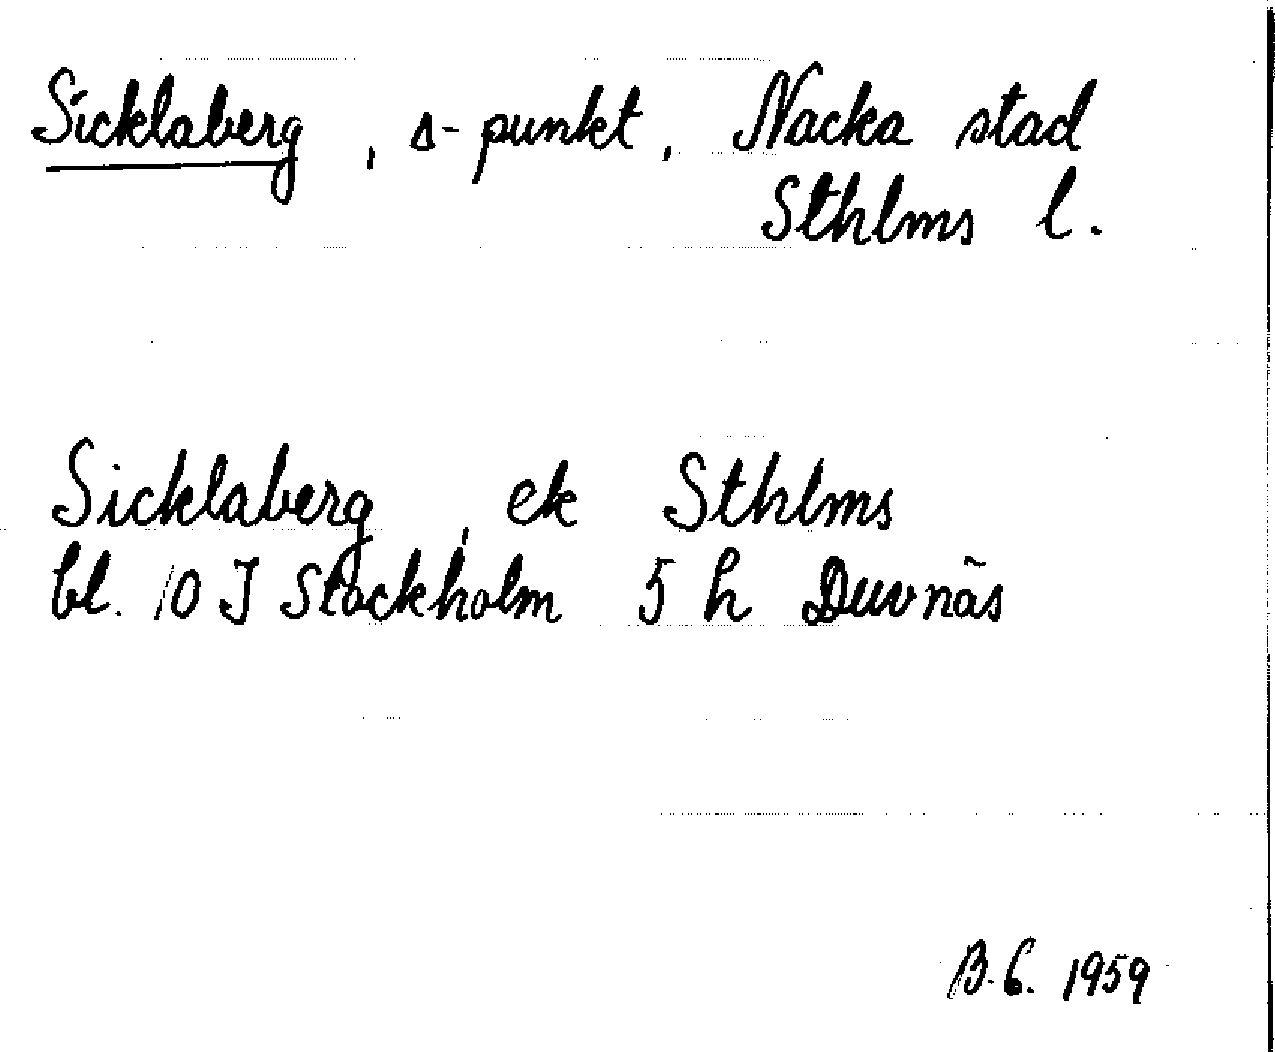 Sicklaberg, Δ-punkt, Nacka stad
Sthlms l.
Sicklaberg, ek Sthlms
bl. 10 J Stockholm 5 h Duvnäs
B.G. 1959